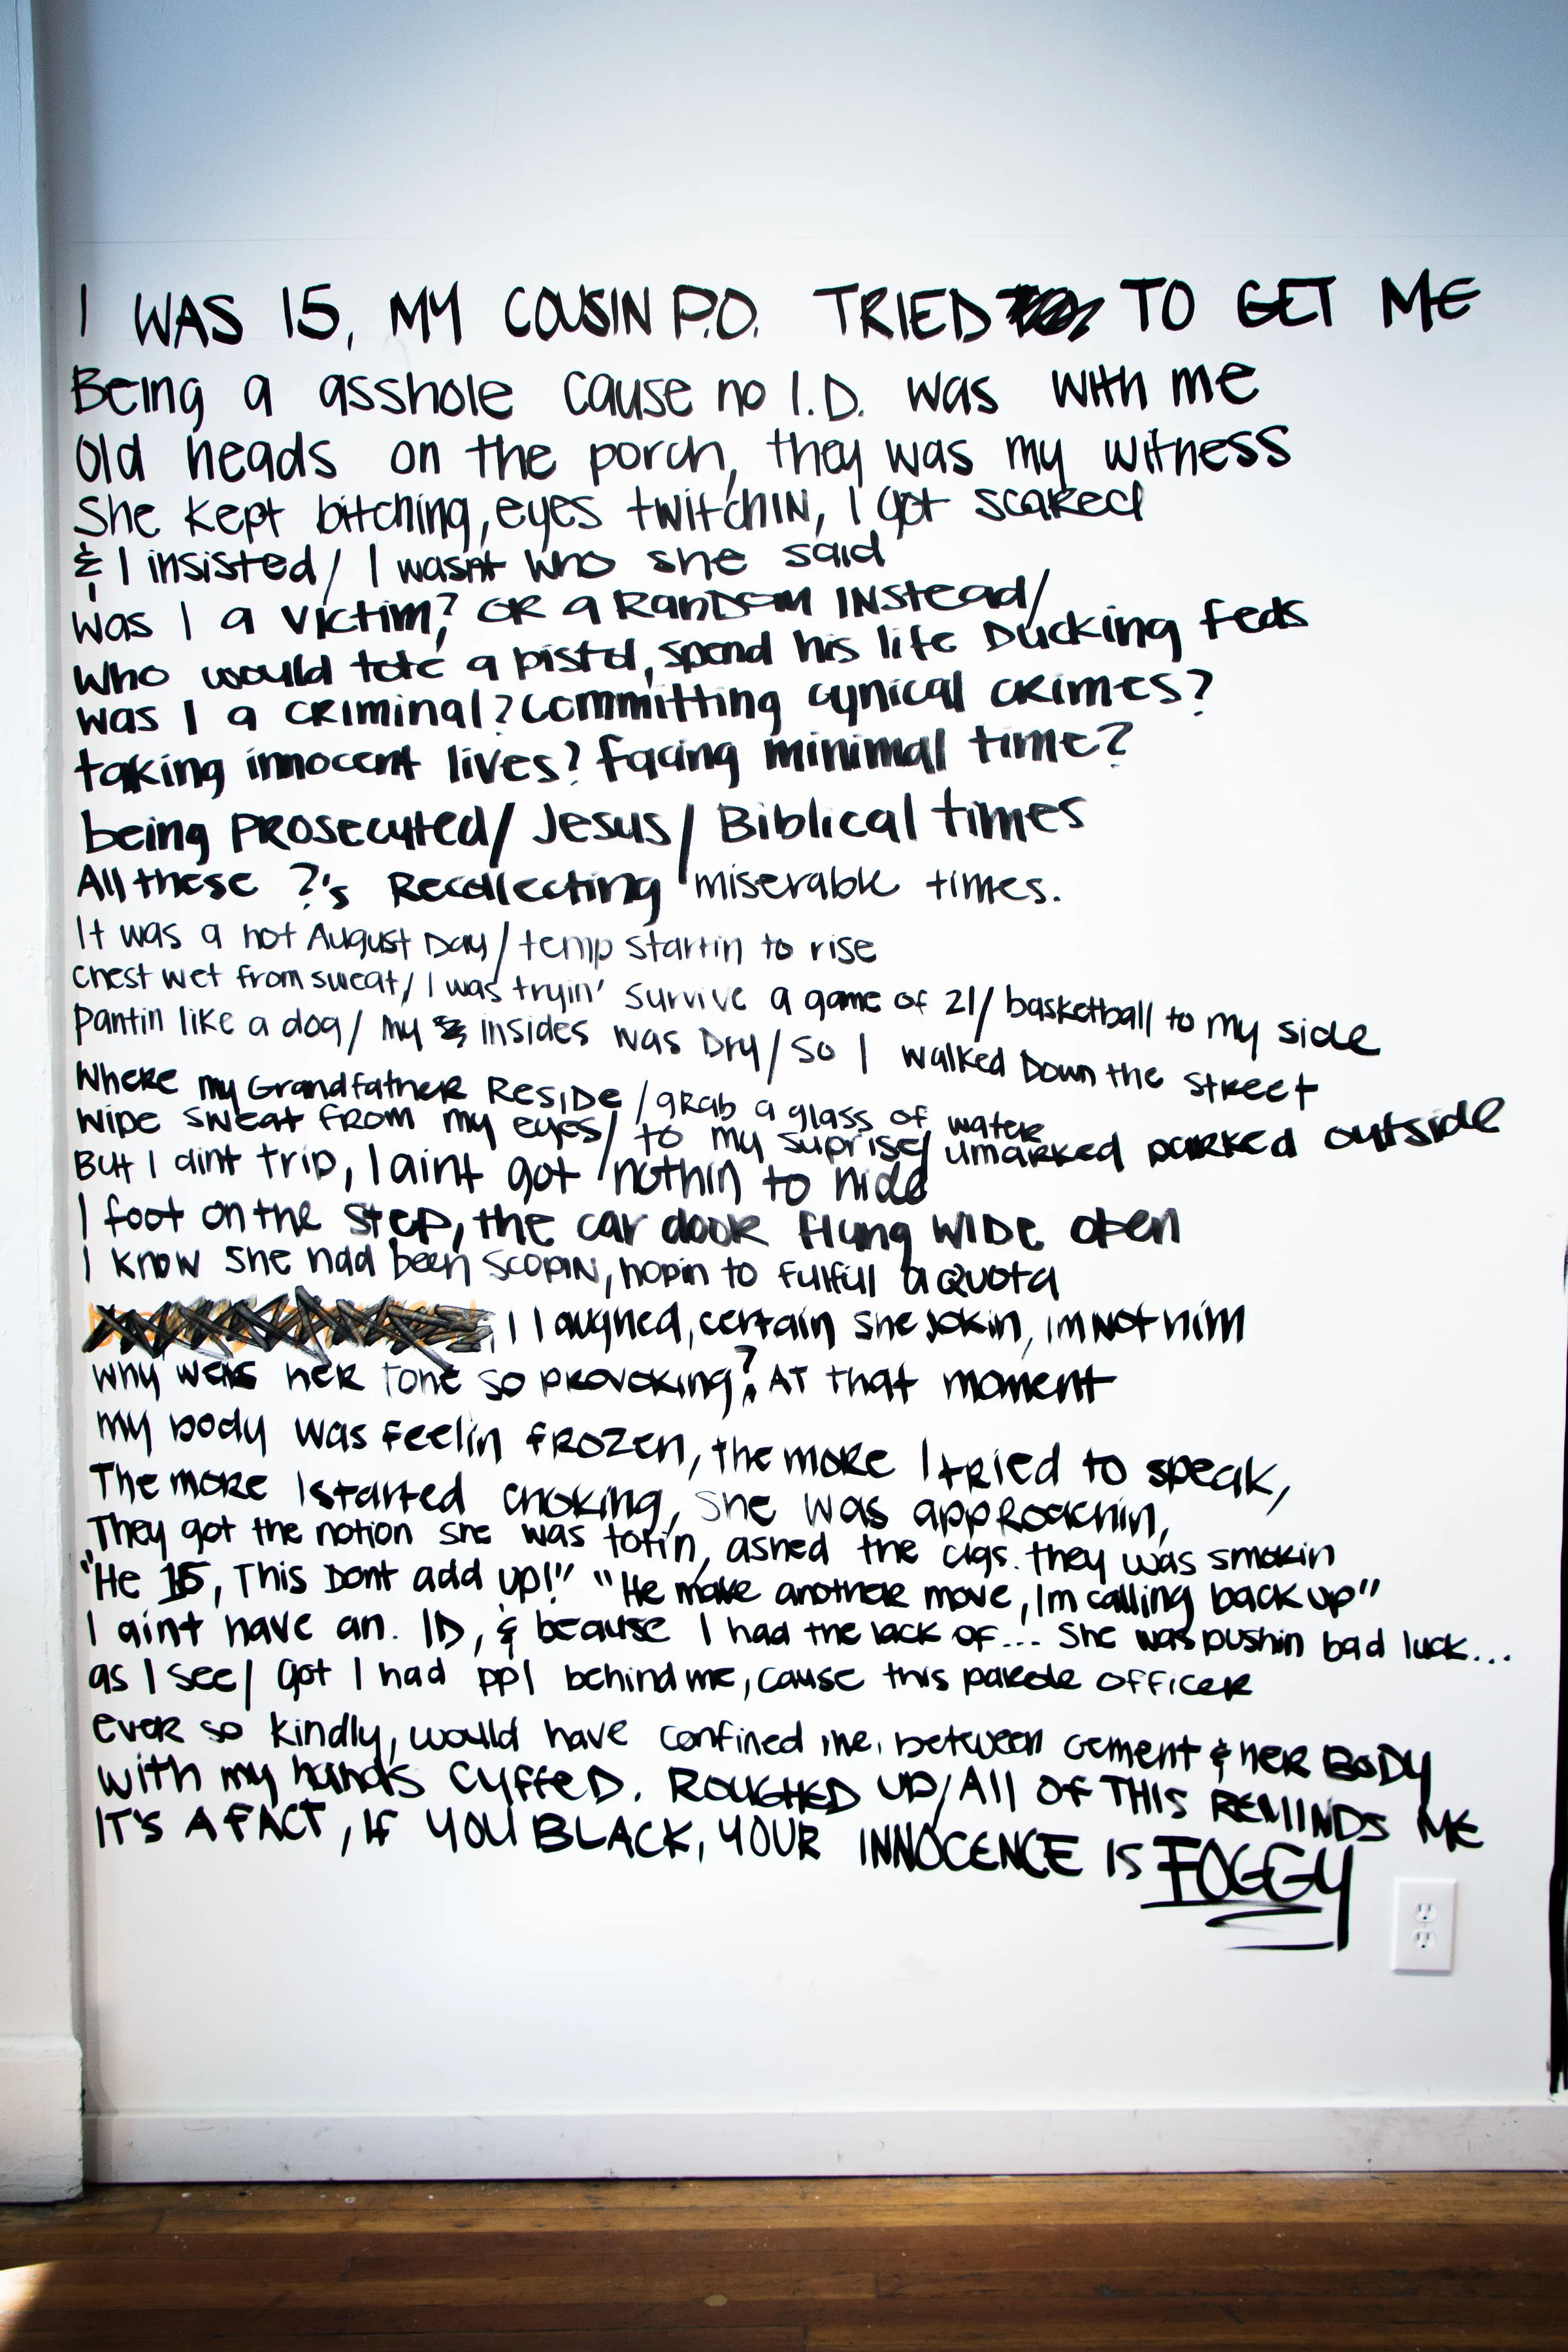 I WAS 15, MY COUSIN P.O. TRIED TO GET ME
Being a asshole cause no I.D. was with me
Old heads on the porch, they was my witness
She kept bitching, eyes twitchin, I got scared
& I insisted/ I wasnt who she said
was I a victim? OR a RanDom INstead/
Who would tote a pistol, spend his life Ducking feds
was I a criminal? Committing cynical crimes?
taking innocent lives? facing minimal time?
being PROSecuted/ Jesus/ Biblical times
All these ?'s Recollecting miserable times.
It was a hot August Day/ temp startin to rise
Chest wet from sweat/ I was tryin' survive a game of 21/ basketball to my side
Pantin like a dog/ my insides was Dry/ so I walked Down the street
Where my Grandfather Reside/ grab a glass of water
Wipe sweat from my eyes/ to my suprise/ umarked parked outside
But I aint trip, I aint got nothin to hide
I foot on the step, the car door flung WIDE open
I know she had been scopin, hopin to fulfull a quota
I laughed, certain she jokin, im not him
why was her tone so provoking? AT that moment
my body was feelin frozen, the more I tried to speak,
The more I started choking, she was approachin,
They got the notion she was totin, ashed the cigs. they was smokin
"He 15, This Dont add up!" "He make another move, Im calling back up"
I aint have an. ID, & beause I had the lack of... She was pushin bad luck...
as I see/ Got I had ppl behind me, cause this parole officer
ever so kindly, would have confined me. between cement & her BODY
with my hands CuffeD. ROUGHED UP/ All of THIS REMINDS ME
IT'S A FACT, IF YOU BLACK, YOUR INNOCENCE IS FOGGY